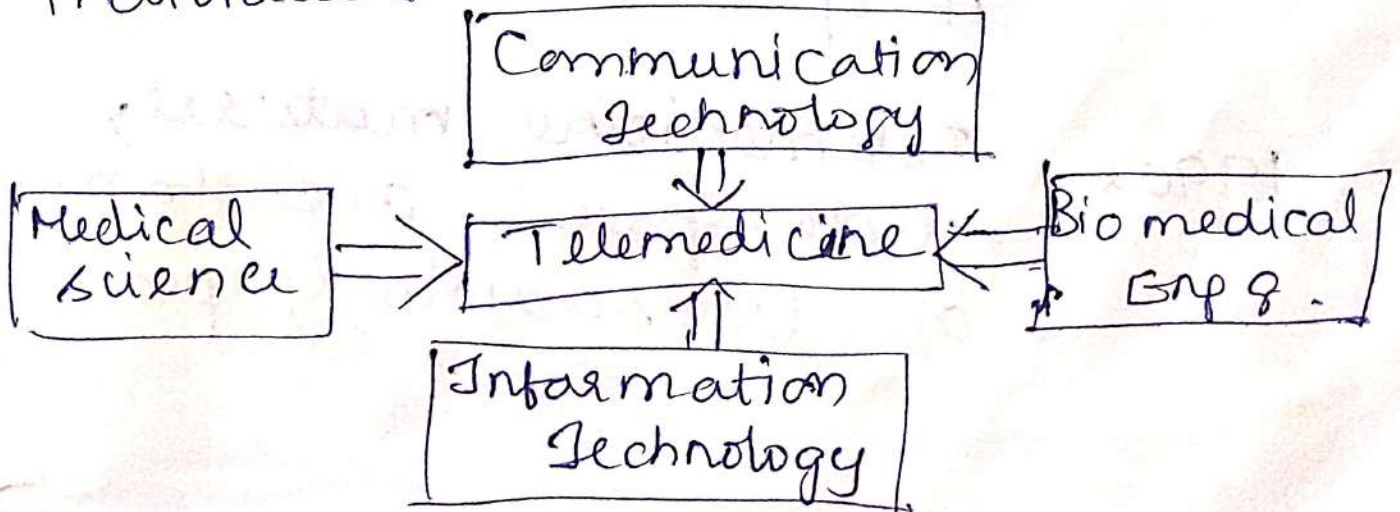 Communication
Technology
Medical
science
Telemedicine
Bio medical
Engg.
Information
Technology